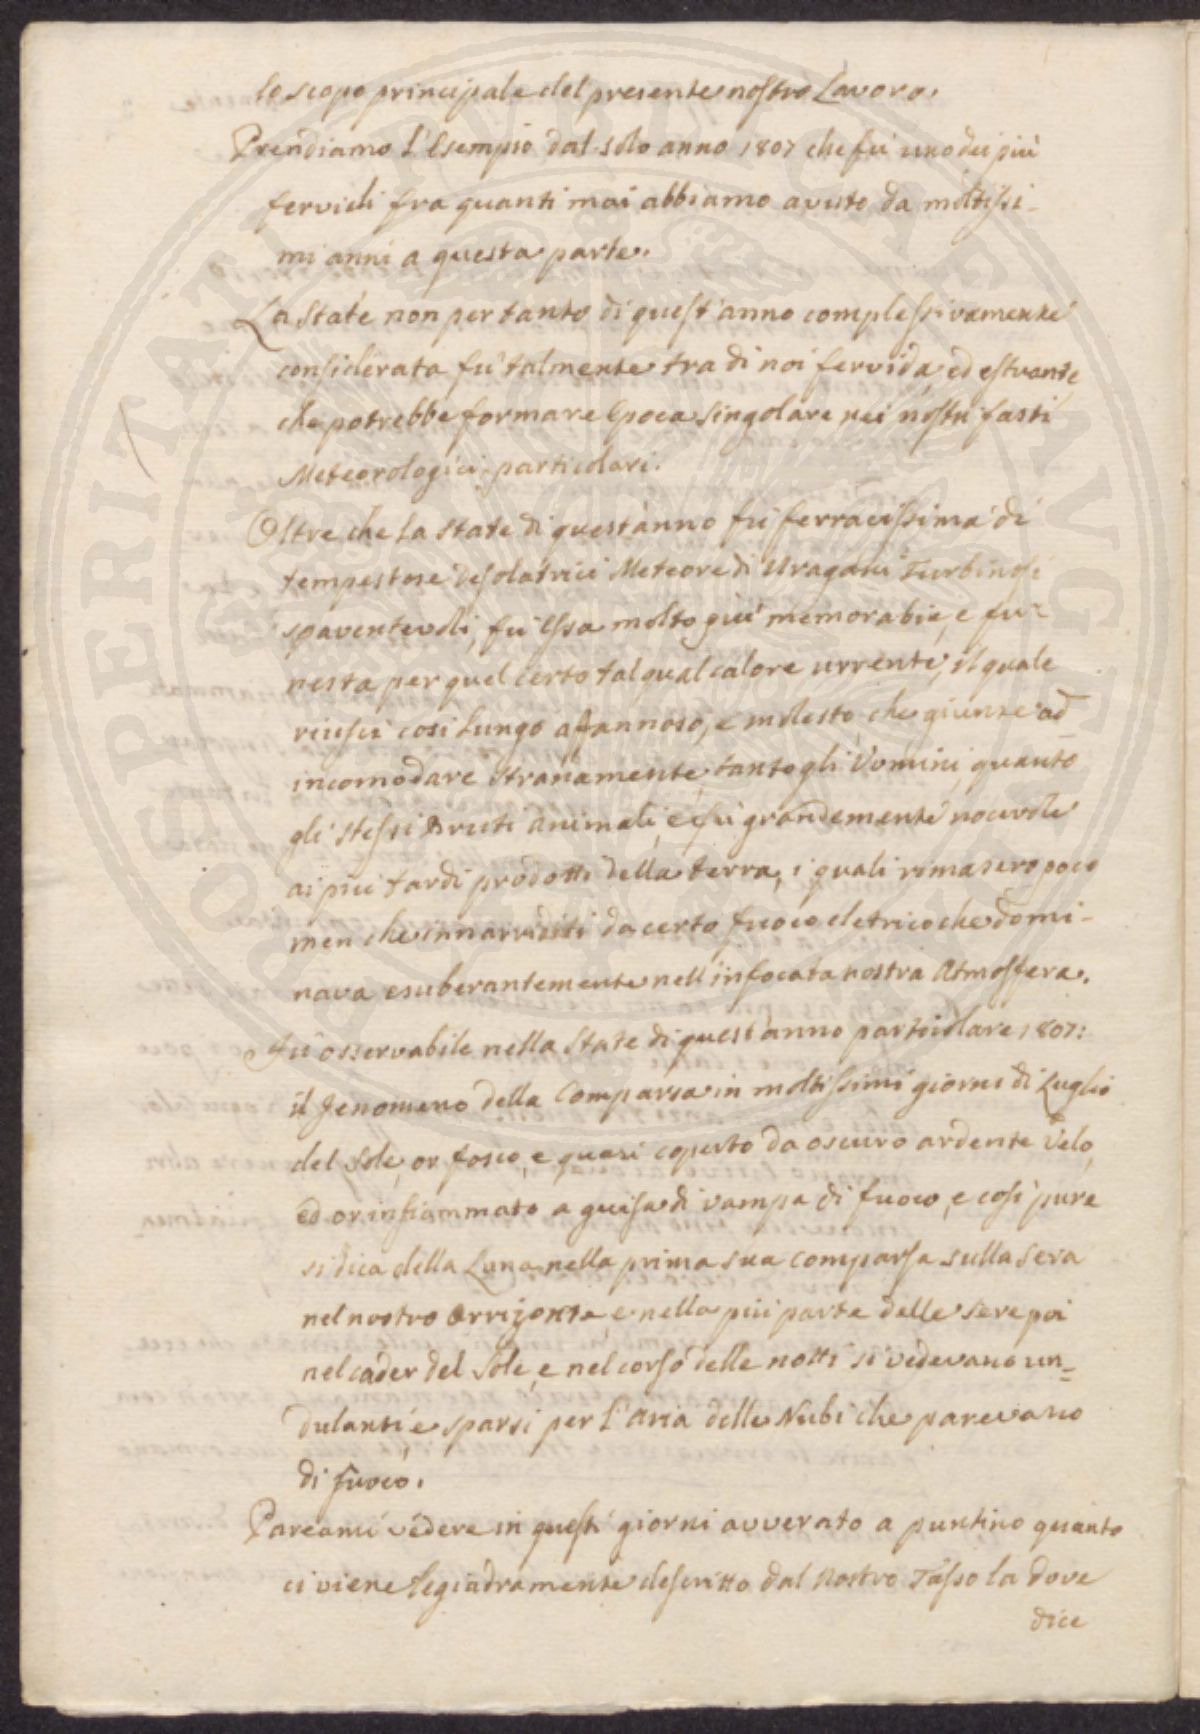 lo scopo principale del presente nostro Lavoro.
Prendiamo l'Esempio dal solo anno 1807 che fù uno dei più
fervidi fra quanti mai abbiamo avuto da moltissi-
mi anni a questa parte.
La State non per tanto di quest'anno complessivamente
considerata fù talmente tra di noi fervida, ed estuante
che potrebbe formare Epoca singolare nei nostri fasti
Meteorologici particolari.
Oltre che la state di quest'anno fù ferracissima di
tempestose desolatrici Meteore di Uragani Turbinosi
spaventevoli, fù Essa molto più memorabie, e fu-
nesta per quel certo tal qual calore urrente, il quale
riuscì così lungo affannoso, e molesto che giunse ad
incomodare stranamente tanto gli Uomini, quanto
gli stessi Bruti animali, e fù grandemente nocevole
ai più tardi prodotti della terra, i quali rimasero poco
men che innarriditi da certo fuoco eletrico che domi-
nava esuberantemente nell'infocata nostra Atmosfera.
Fù osservabile nella State di quest'anno particolare 1807:
il Fenomeno della Comparsa in moltissimi giorni di Luglio
del Sole, or fosco, e quasi coperto da oscuro ardente Velo,
ed or infiammato a guisa di vampa di fuoco, e così pure
si dica della Luna nella prima sua comparsa sulla sera
nel nostro Orrizonte, e nella più parte delle sere poi
nel cader del Sole, e nel corso delle notti si vedevano un=
dulanti, e sparsi per l'Aria delle Nubi che parevano
di fuoco.
Pareami vedere in questi giorni avverato a puntino quanto
ci viene legiadramente descritto dal Nostro Tasso la dove
dice
PROSPERITATI PUBLICAE AUGENDAE